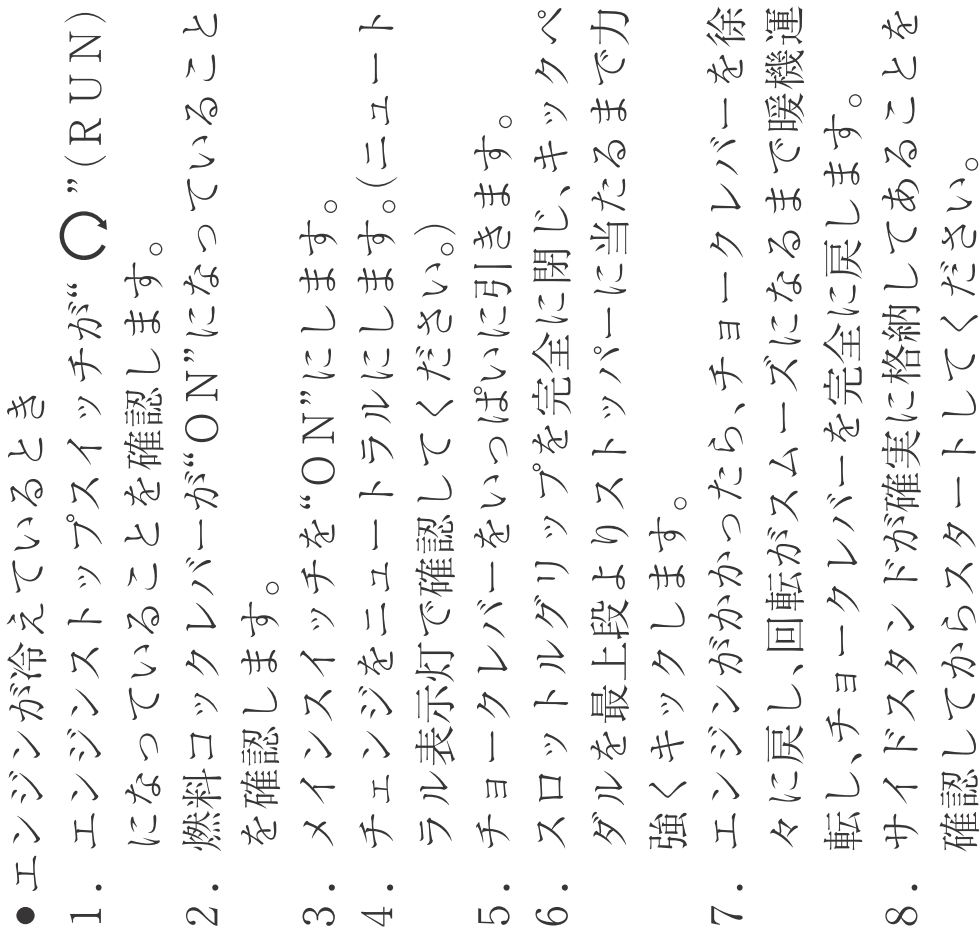 ●エンジンが冷えているとき
1．エンジンストップスイッチが“ ”(RUN)
になっていることを確認します。
2．燃料コックレバーが“ON”になっていること
を確認します。
3．メインスイッチを“ON”にします。
4．チェンジをニュートラルにします。(ニュート
ラル表示灯で確認してください。)
5．チョークレバーをいっぱいに引きます。
6．スロットルグリップを完全に閉じ、キックペ
ダルを最上段よりストッパーに当たるまで力
強くキックします。
7．エンジンがかかったら、チョークレバーを徐
々に戻し、回転がスムーズになるまで暖機運
転し、チョークレバーを完全に戻します。
8．サイドスタンドが確実に格納してあることを
確認してからスタートしてください。